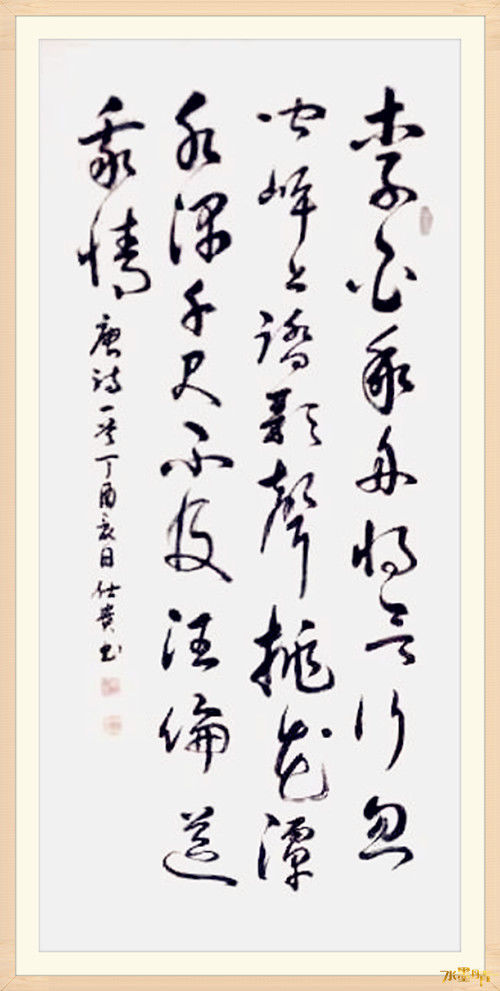 李白乘舟将欲行忽
闻岸上踏歌聲桃花潭
水深千尺不及汪倫送
我情
唐诗一首丁酉日仕贵书
水墨